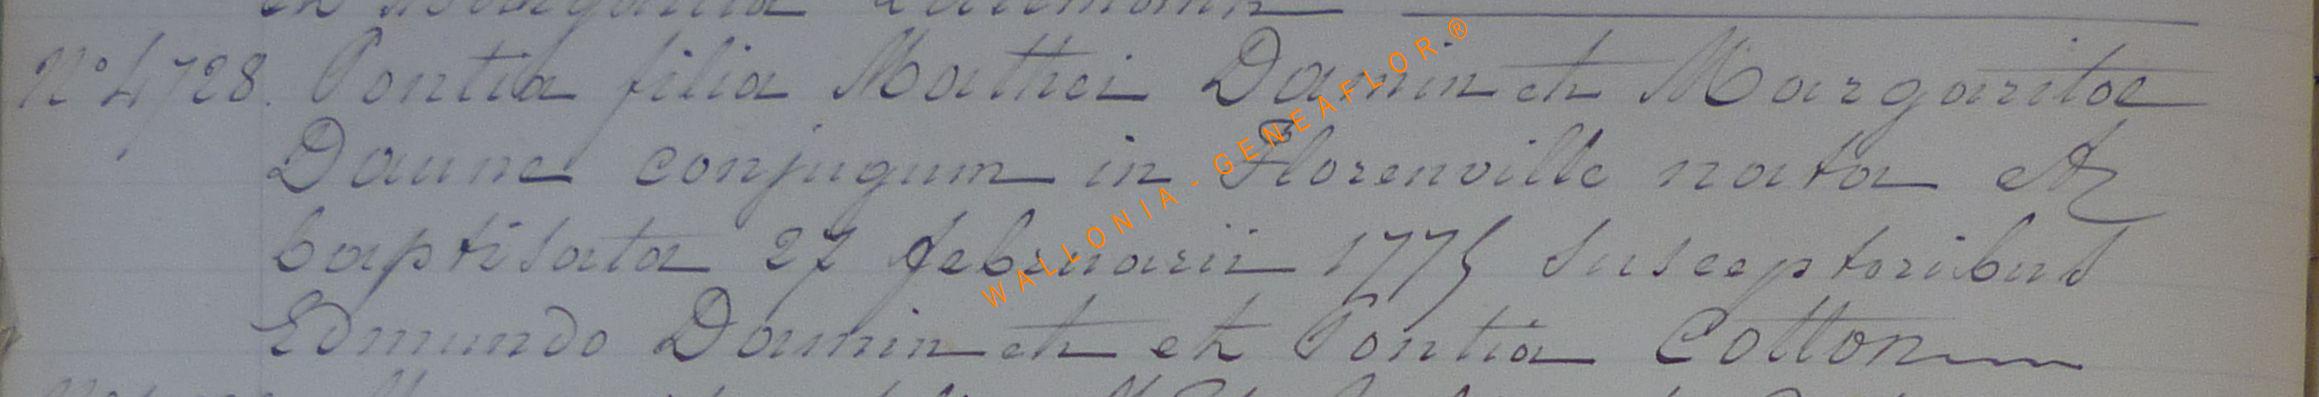 et Margarita
N° 4728. Pontia filia Mathei Damin et Margaritae
Daune conjugum in Florenville nata et
baptisata 27 februarii 1775 Susceptoribus
Edmundo Damin et et Pontia Cotton
WALLONIA - GENEAFLOR.®